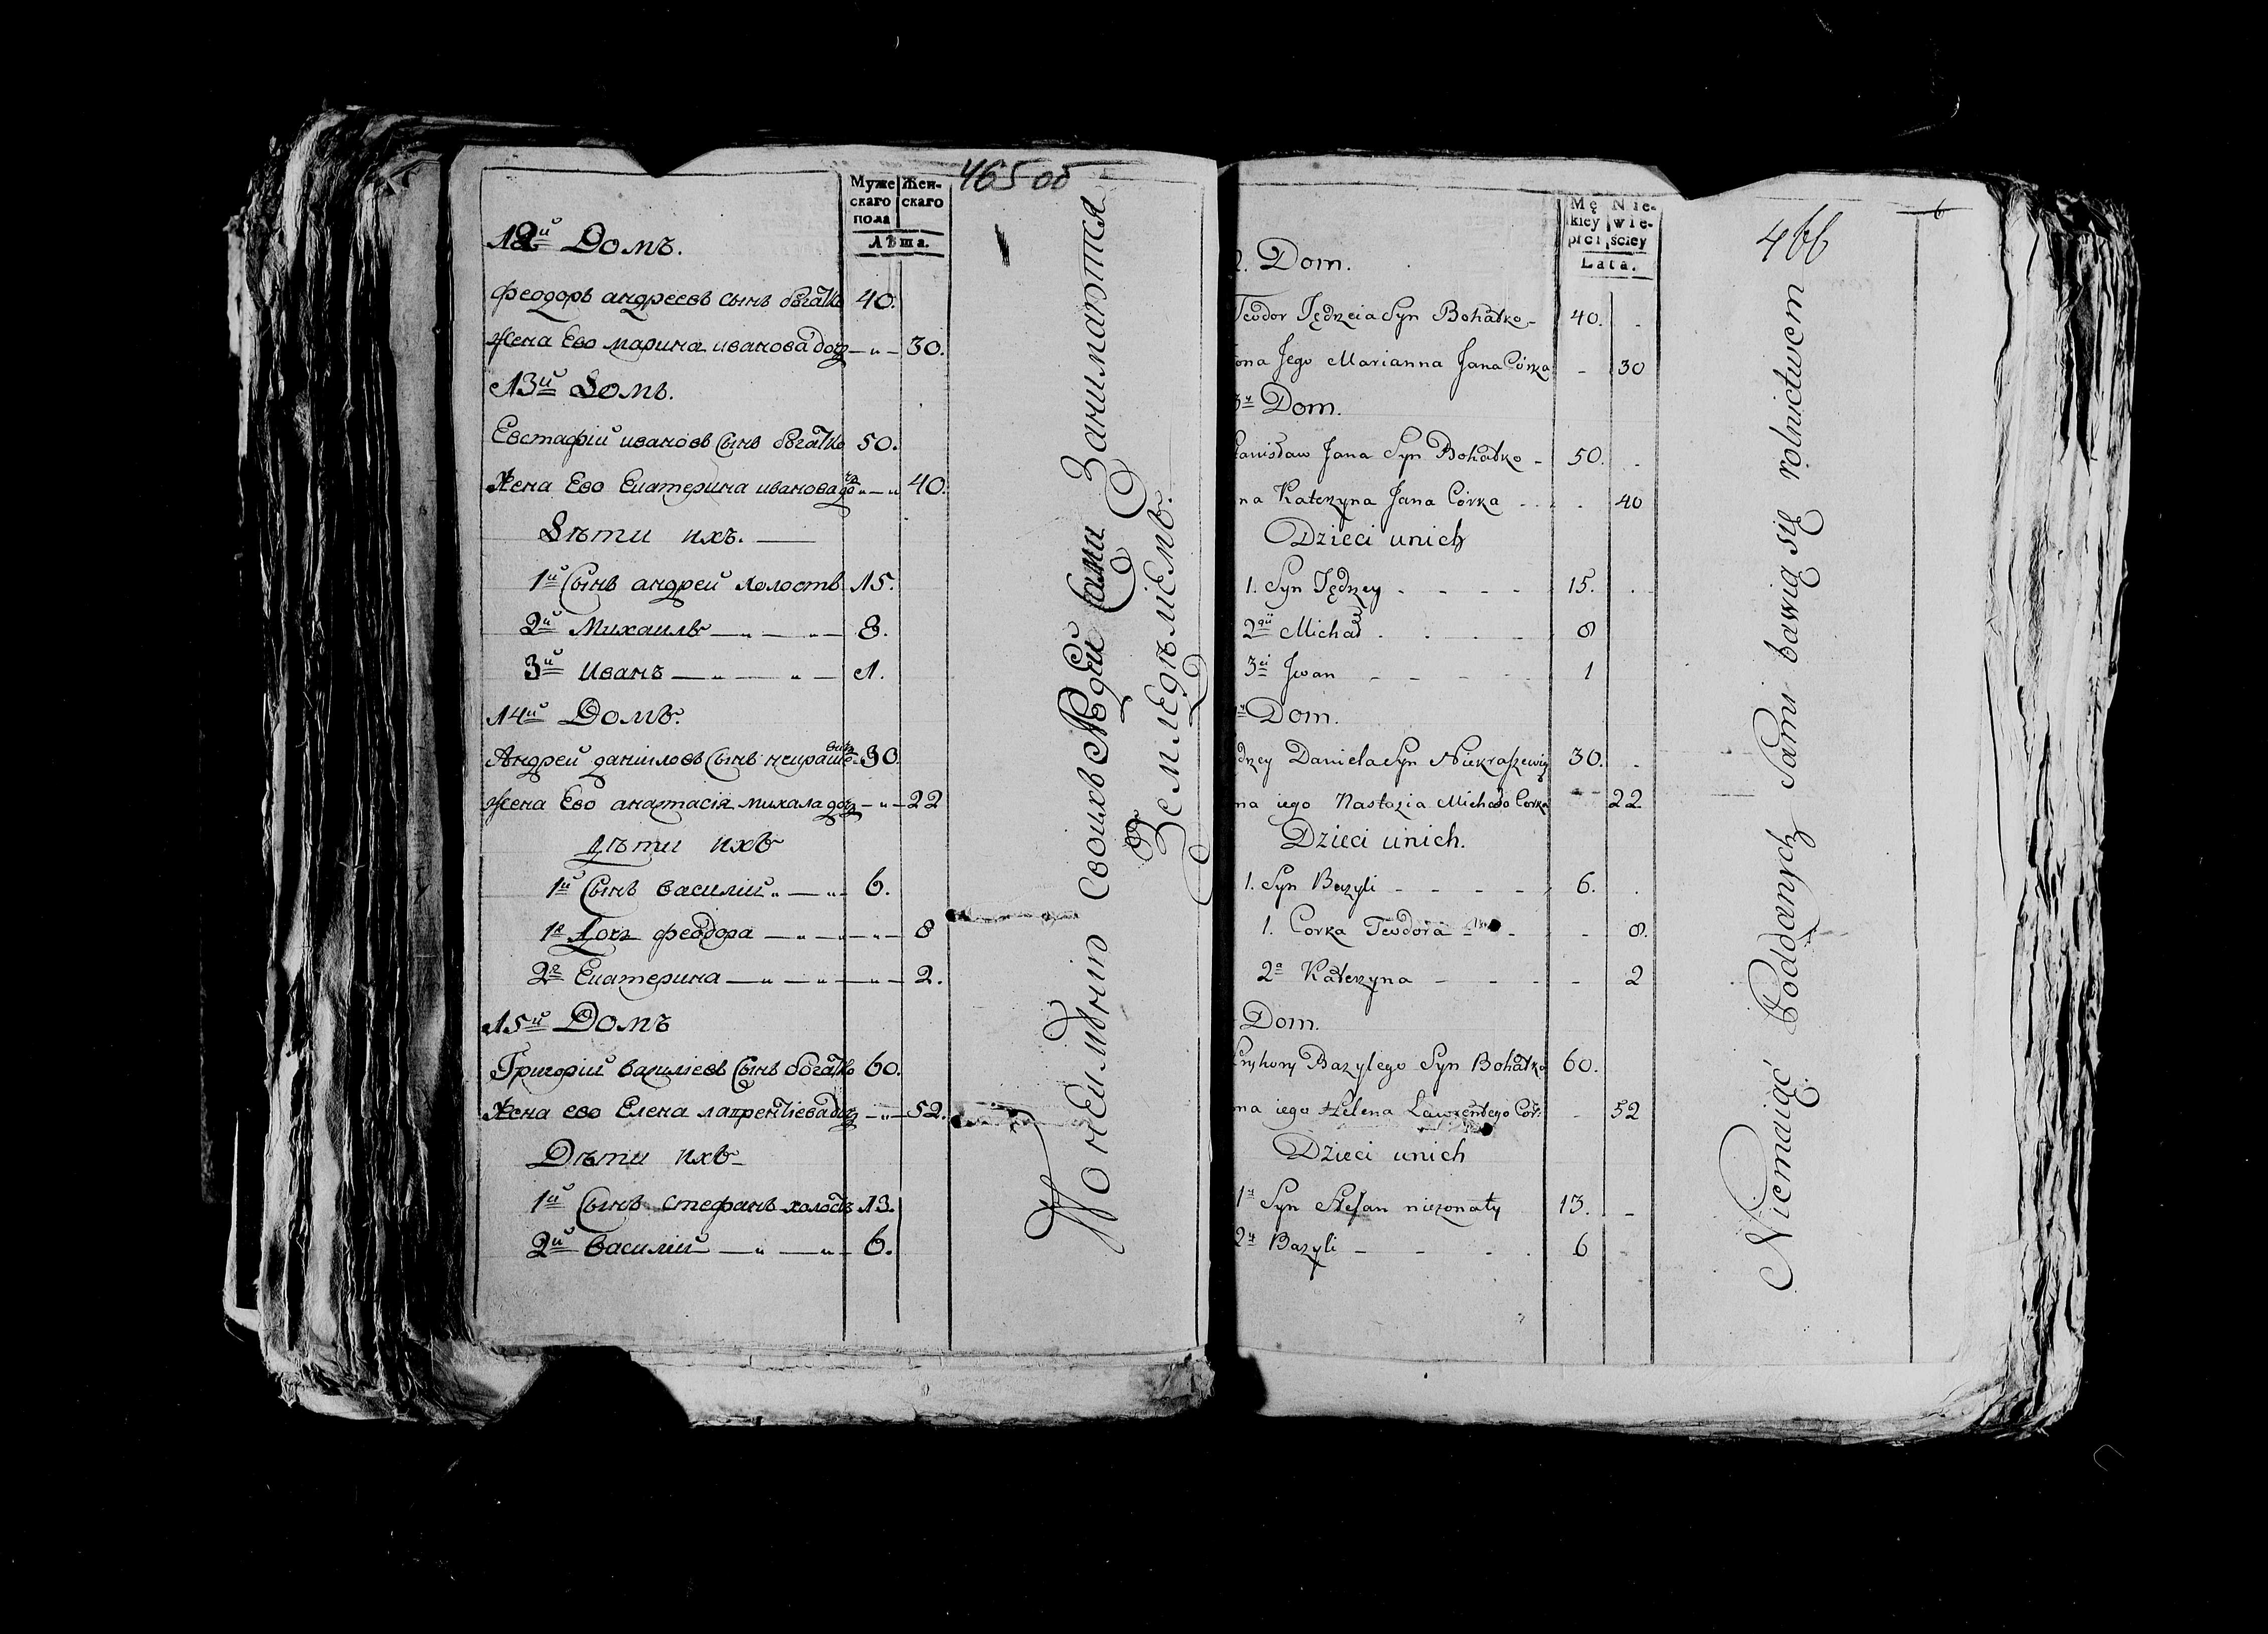 465 об
Муже
скаго
пола
Жен-
скаго
Лѣта.
12й Домъ.
Феодоръ андреевъ сынъ богатко 40.
Жена Ево марина иванова дочь — „ — 30.
13й Домъ.
Евстафій ивановъ сынъ богатко 50.
Жена Ево Екатерина иванова дочь „ — „ 40.
Дѣти ихъ. —
1й Сынъ андрей холостъ 15.
2й Михаилъ — „ — „ — 8.
3й Иванъ — „ — „ — 1.
14й Домъ.
Андрей даниловъ сынъ некрашевичь 30.
Жена Ево анастасія михала дочь — „ — 22
дѣти ихъ
1й Сынъ василий „ — „ 6.
1я Дочь феодора — „ — „ — „ — 8
2я Екатерина — „ — „ — „ — 2.
15й Домъ
Григорій василіевъ сынъ богатко 60.
Жена ево Елена лаврентіева дочь — „ — 52.
Дѣти ихъ
1й Сынъ стефанъ холостъ 13.
2й Василий — „ — „ — 6.
Понеимѣнію своихъ Людей Сами Занимаются
Земледѣліемъ.
466
Mę
kiey
płci
Nie-
wie-
ściey
Lata.
2. Dom.
Teodor Jędrzeia Syn Bohatko - 40. .
ona Jego Marianna Jana Córka - 30
3y Dom.
tanisław Jana Syn Bohatko - 50. .
na Katerzyna Jana Córka . . . 40
Dzieci unich
1. Syn Jędrzey - - - - 15. .
2gii Michał . . - - 8
3ci Jwan - - - - 1
y Dom.
drzey Daniela Syn Niekraszewicz 30. .
na iego Nastazia Michała Corka - 22
Dzieci unich.
1. Syn Bazyli - - - - - 6. .
1. Corka Teodora - - - 8.
2a Katerzyna - - - - 2
Dom.
Gryhory Bazylego Syn Bohatko 60.
na iego Helena Lawrentego Cór: - 52
Dzieci unich
1y Syn Stefan niezonaty 13. -
2y Bazyli - - - . 6 -
Niemaiąć Poddanych Sami bawią się rolnictwem